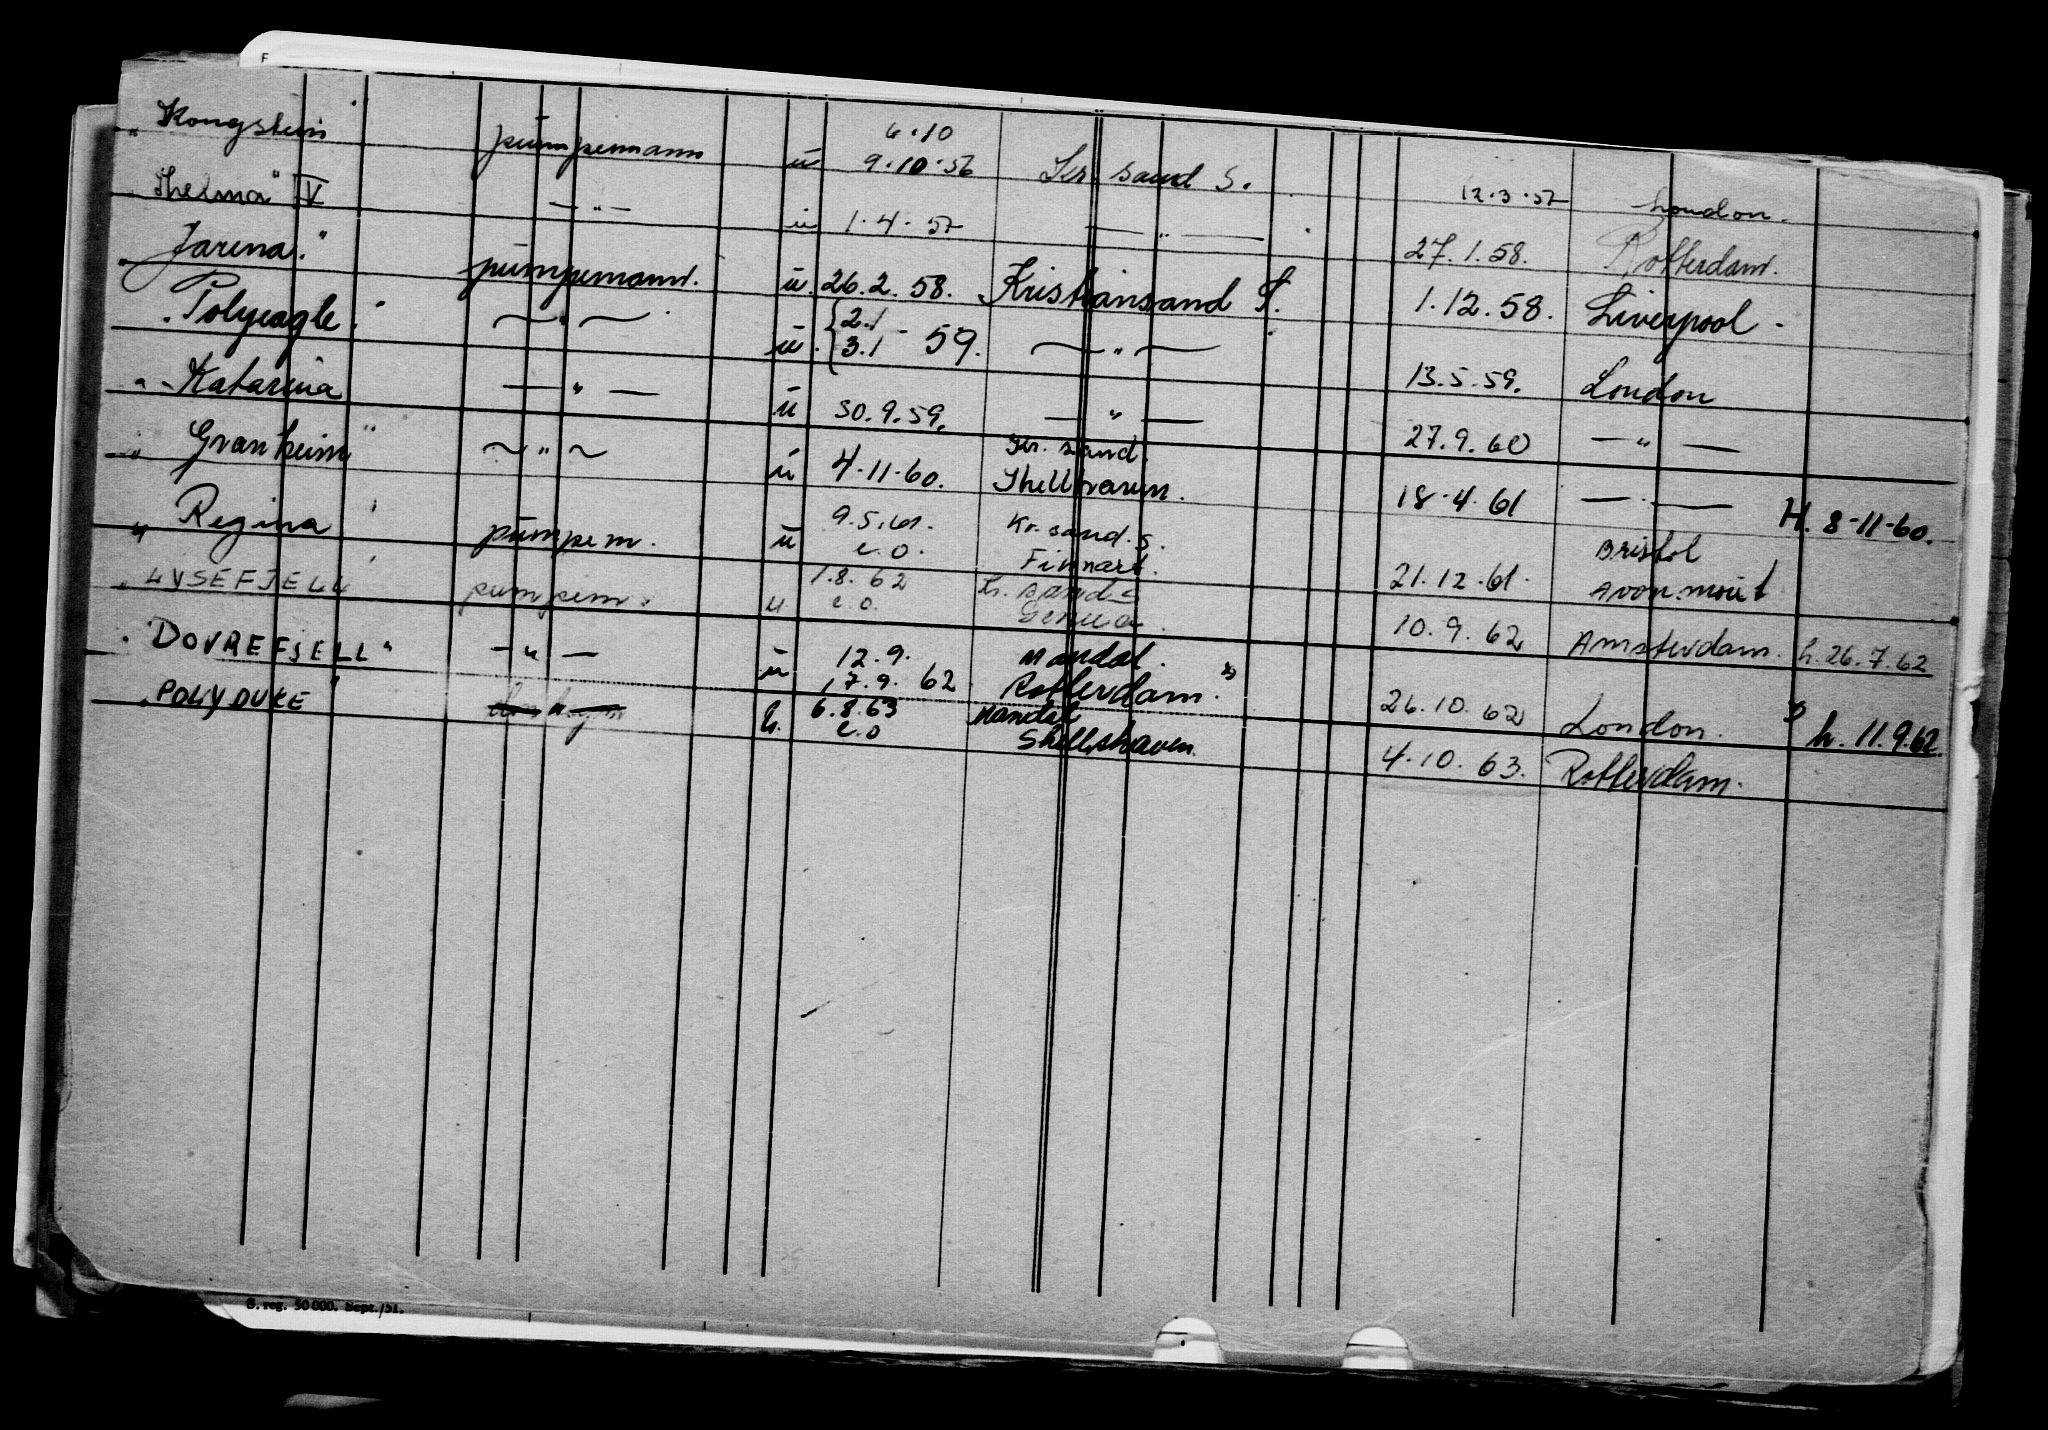 F
" Kongstein pumpemann u 6.10 9.10.56 Kr. sand S. 12.3.57 London.
Thelma" IV —"— u 1.4.57 —"— 27.1.58. Rotterdam.
" Jarena." pumpemann. u. 26.2.58. Kristiansand S. 1.12.58. Liverpool.
" Polyeagle." ~"~ u. {2.1 3.1 - 59. ~"~ 13.5.59. London
" Katarina —"— u 30.9.59. —"— 27.9.60 —"—
" Granheim" ~"~ u 4-11-60. Kr. sand. Shellhaven. 18-4.61 —"— H. 8-11-60.
" Regina" pumpem. u 9.5.61. e.o. Kr. sand. S. Finnart. 21.12.61. Bristol Avonmout
" LYSEFJELL" pumpem. u 1.8.62 e.o. Kr. sand S Genua. 10.9.62 Amsterdam. h. 26.7.62
" DOVREFJELL" —"— u 12.9. 17.9.62 Mandal. Rotterdam. 26.10.62 London. h. 11.9.62.
" POLYDUKE" h. 6.8.63 e.o Mandal Shellshaven. 4.10.63. Rotterdam.
S. reg. 50 000. Sept./51.